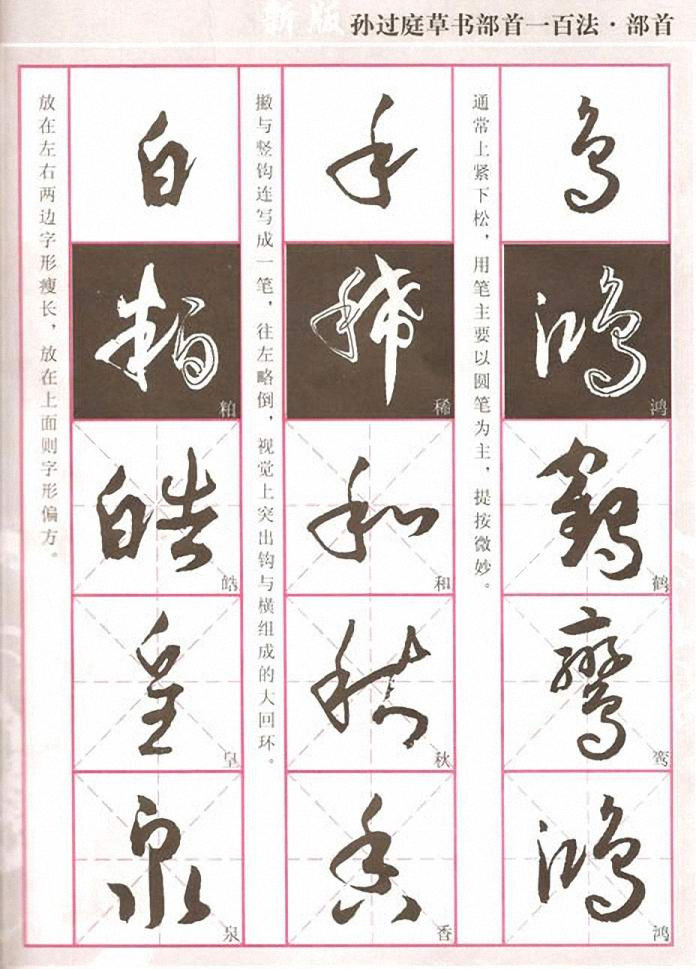 新版
孙过庭草书部首一百法·部首
鸟
鸿
鸿
鹤
鹤
鸾
鸾
鸿
鸿
通常上紧下松，用笔主要以圆笔为主，提按微妙。
禾
稀
稀
和
和
秋
秋
香
香
撇与竖钩连写成一笔，往左略倒，视觉上突出钩与横组成的大回环。
白
粕
粕
皓
皓
皇
皇
泉
泉
放在左右两边字形瘦长，放在上面则字形偏方。